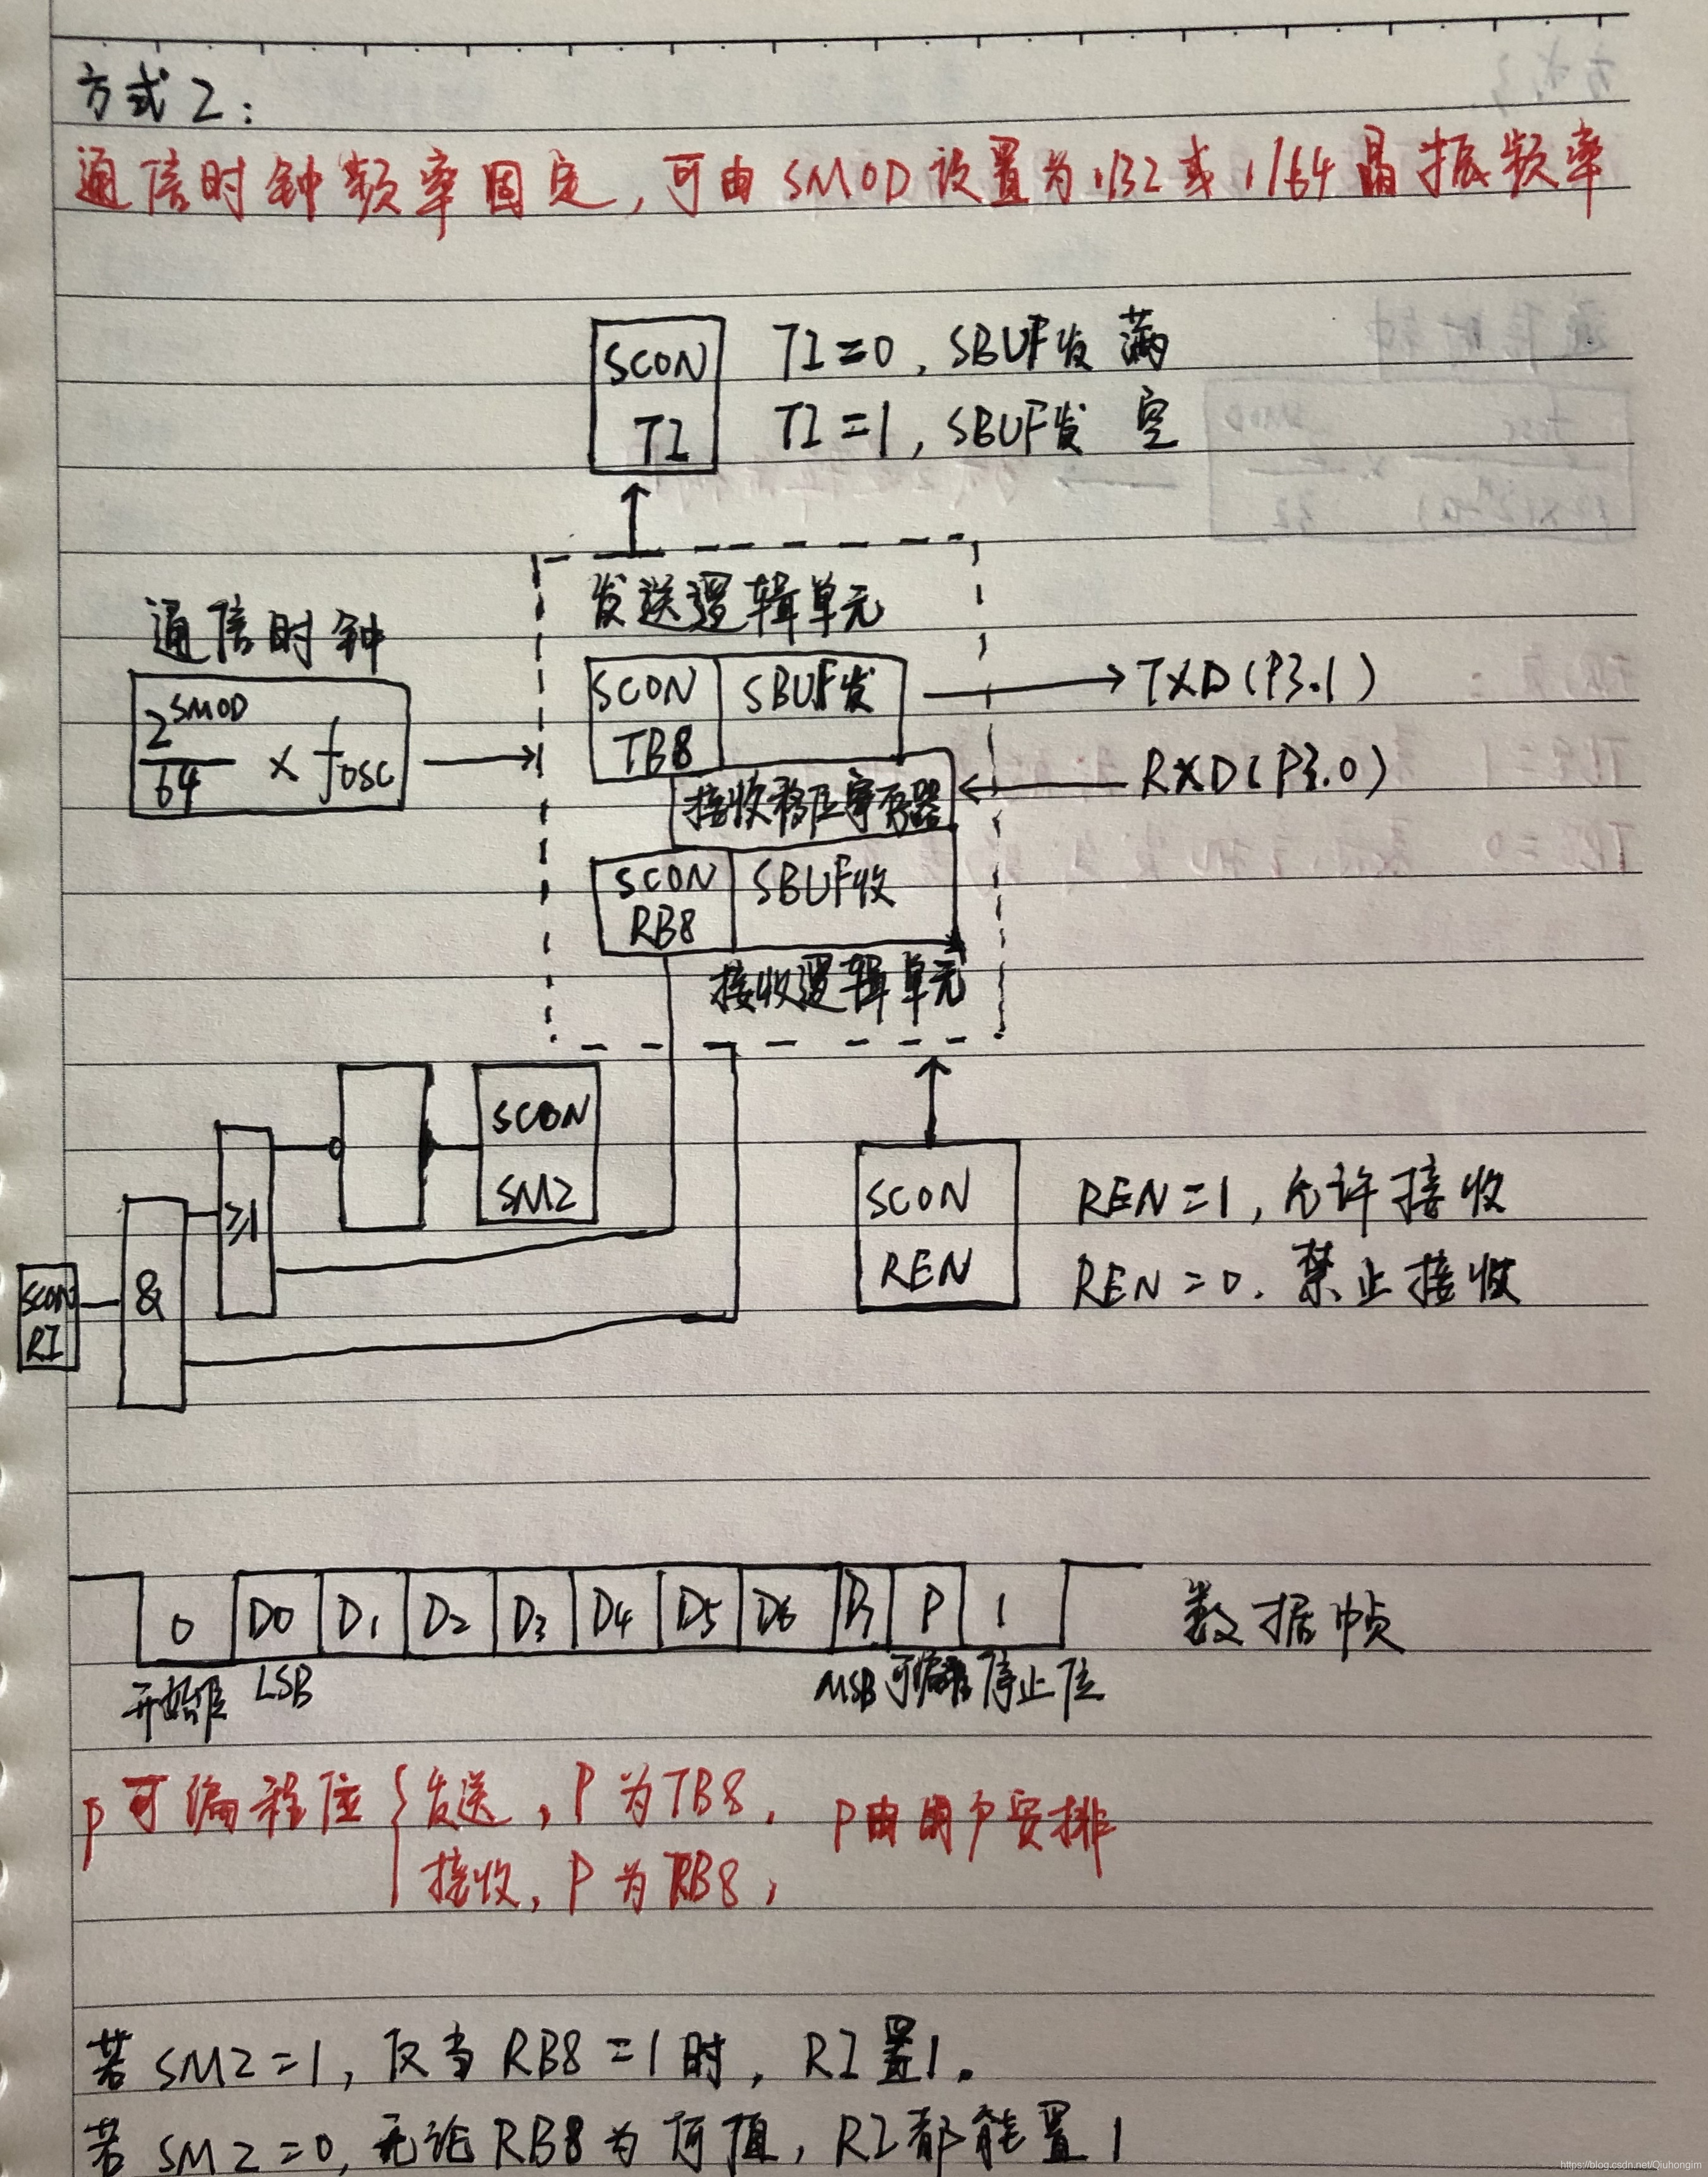 方式2:
通信时钟频率固定,可由SMOD设置为1/32或1/64晶振频率
SCON TI=0, SBUF发 满
TI TI=1, SBUF发 空
发送逻辑单元
通信时钟
SCON SBUF发 TXD(P3.1)
TB8
2^SMOD/64 × fosc
RXD(P3.0)
接收移位寄存器
SCON SBUF收
RB8
接收逻辑单元
SCON
SM2
≥1
&
SCON
RI
SCON REN=1,允许接收
REN REN=0.禁止接收
0 D0 D1 D2 D3 D4 D5 D6 D7 P 1 数据帧
开始位 LSB MSB 可编程 停止位
P可编程位 { 发送,P为TB8, P由用户安排
接收,P为RB8,
若SM2=1,仅当RB8=1时,RI置1。
若SM2=0,无论RB8为何值,RI都能置1
https://blog.csdn.net/Qiuhongim